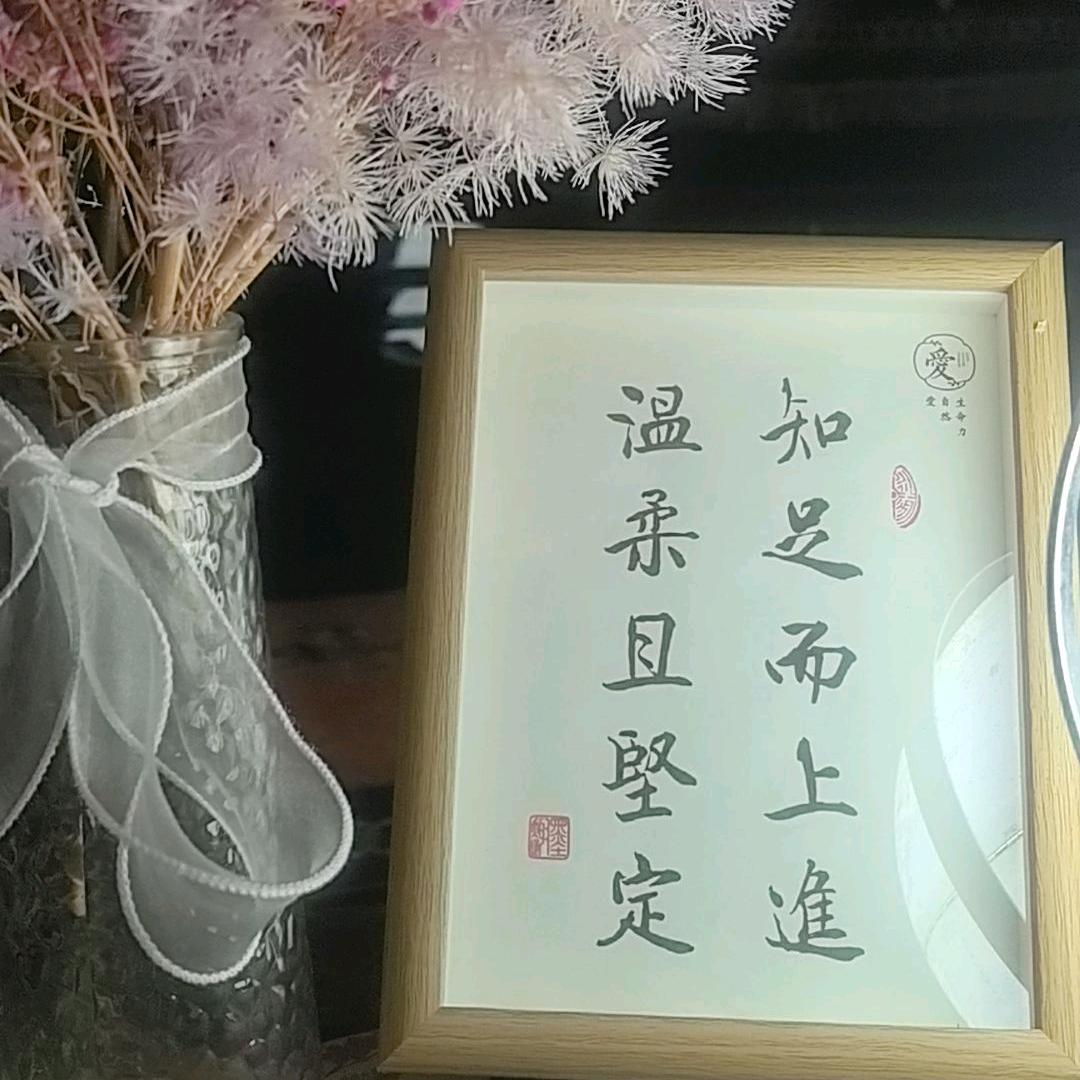 知足而上進
溫柔且堅定
愛
生命力
自然
愛